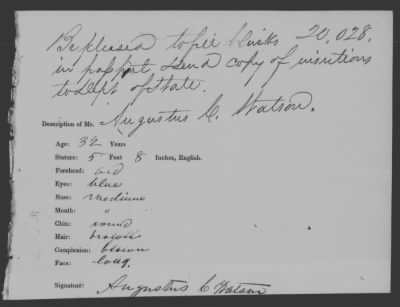 Be pleased to fill blanks 20,028,
in passport, send copy of insertions
to Dept of State.
Description of Mr. Augustus C. Watson.
Age: 32 Years
Stature: 5 Feet 8 Inches, English.
Forehead: ord
Eyes: blue
Nose: medium
Mouth: "
Chin: round
Hair: brown
Complexion: brown
Face: long.
Signature: Augustus C Watson